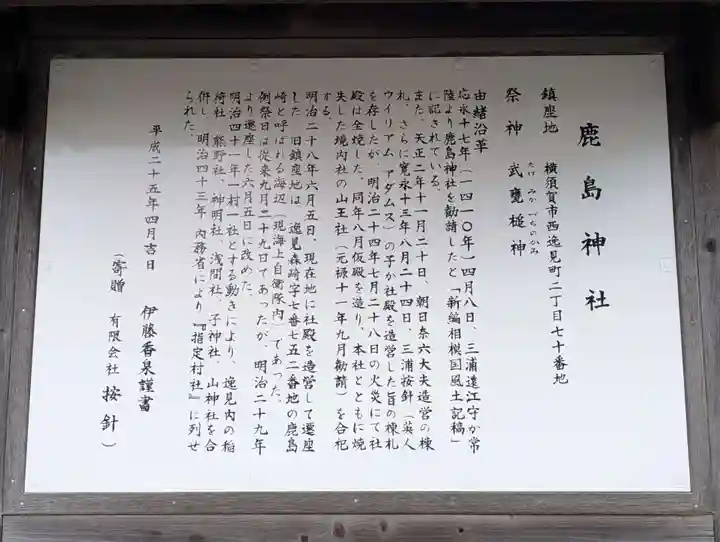 鹿島神社
鎮座地　横須賀市西逸見町二丁目七十番地
祭神　武甕槌神
たけみかづちのかみ
由緒沿革
応永十七年（一四一〇年）四月八日、三浦遠江守が常
陸より鹿島神社を勧請したと「新編相模国風土記稿」
に記されている。
また、天正二年十一月二十日、朝日奈六大夫造営の棟
札、さらに寛永十三年八月二十四日、三浦按針（英人
ウイリアム　アダムス）の子が社殿を造営した旨の棟札
を存したが、明治二十四年七月二十八日の火災にて社
殿は全焼した。同年八月仮殿を造り、本社とともに焼
失した境内社の山王社（元禄十一年九月勧請）を合祀
する。
明治二十八年六月五日、現在地に社殿を造営して遷座
した。旧鎮座地は、逸見森崎字七番七五二番地の鹿島
崎と呼ばれる海辺（現海上自衛隊内）であった。
例祭日は従来九月二十九日であったが、明治二十九年
より遷座した六月五日に改めた。
明治四十一年一村一社とする動きにより、逸見内の稲
荷社、熊野社、神明社、浅間社、子神社、山神社を合
併し、明治四十三年　内務省により『指定村社』に列せ
られた。
平成二十五年四月吉日　伊藤香泉謹書
（寄贈　有限会社　按針）